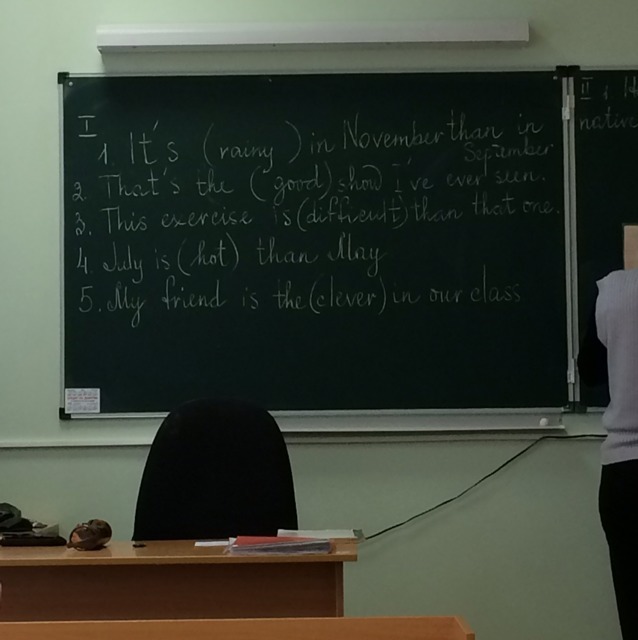 I
1. It's (rainy) in November than in
September
2. That's the (good) show I've ever seen.
3. This exercise is (difficult) than that one.
4. July is (hot) than May
5. My friend is the (clever) in our class
II 1.
native